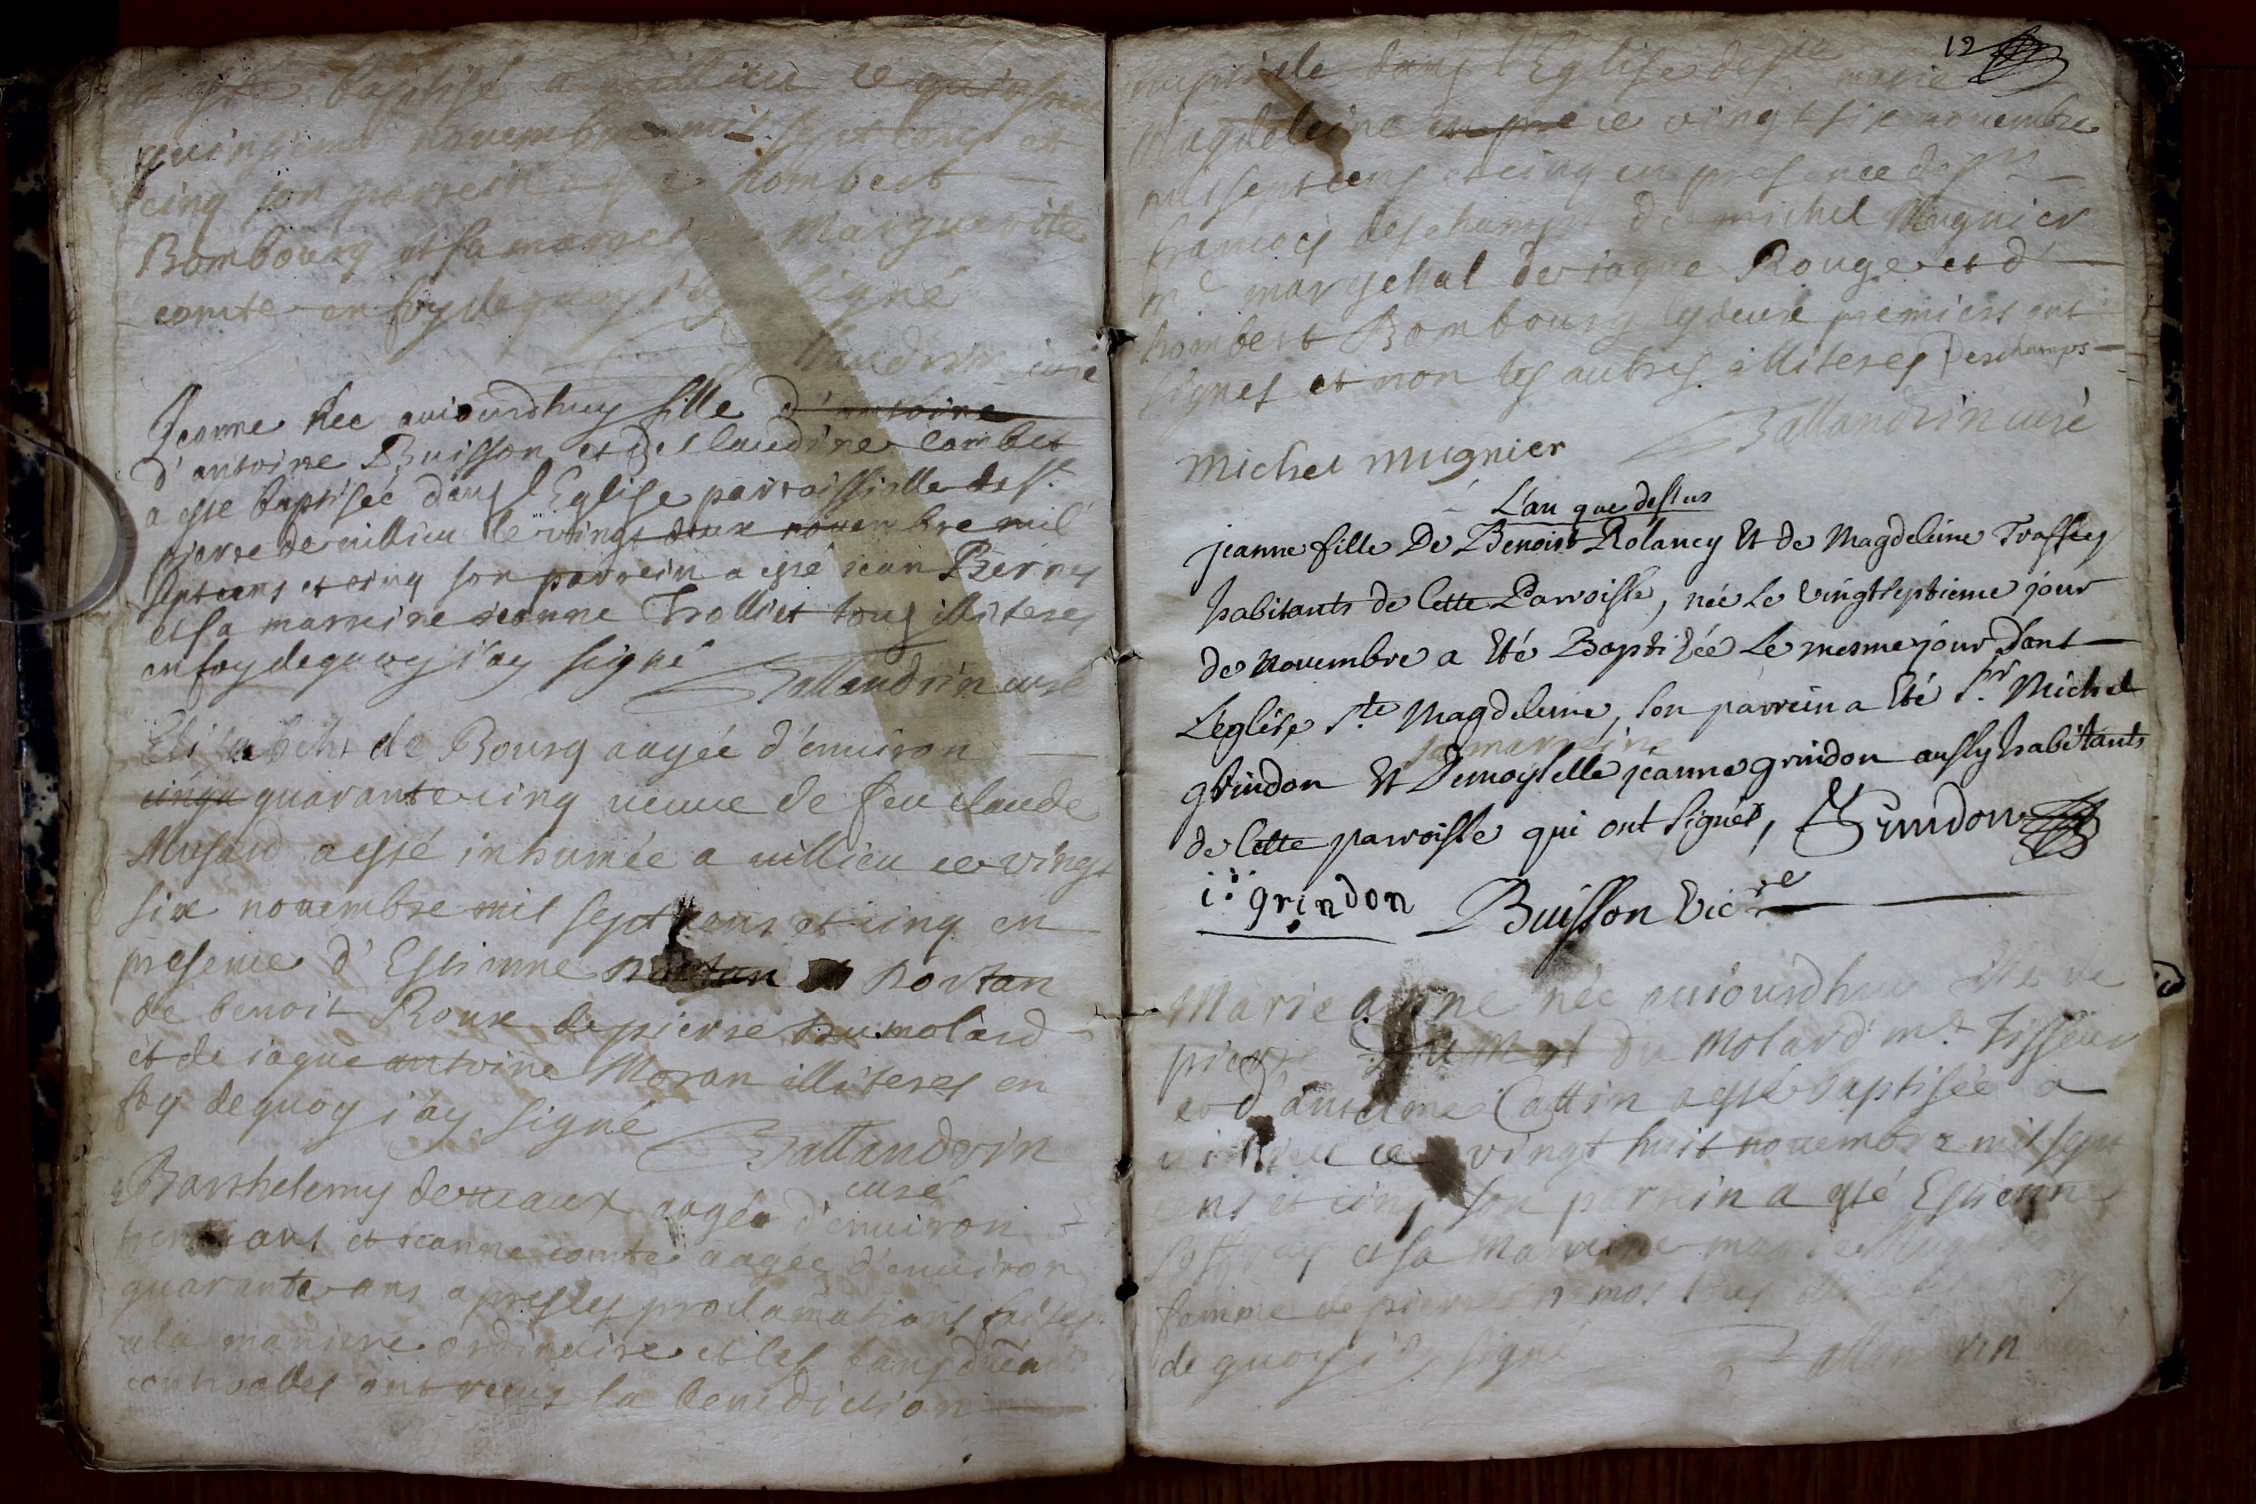 a esté baptisé a millieu ce
quinzieme novembre mil sept cens et
cinq son parrein a esté hombert
Bombourg et sa marreine Marguerite
comte en foy de quoy j'ay signé
curé
Jeanne née auiourdhuy fille d'antoine
d'antoine Buisson et de Claudine Combet
a esté baptisée dans l'Eglise parroissialle de st
pierre de millieu le vingt deux novembre mil
sept cens et cinq son parrein a esté jean Bernes
et sa marreine jeanne Trolliet tous illiteres
en foy de quoy j'ay signé Ballandrin curé
Elisabeht de Bourg aagée d'environ
cinqu quarante cinq veuve de feu claude
Musard a esté inhumée a millieu ce vingt
six novembre mil sept cens et cinq en
presence d'Estienne nortan
de benoit Roux de pierre du molard
et de iaque antoine Moran illiteres en
foy de quoy j'ay signé Ballandrin
curé
Barthelemy aagée d'environ
ans et jeanne comte aagée d'environ
quarante ans apres les proclamations faites
a la maniere ordinaire et les bans
controllés ont receus la benediction
12
dans l'Eglise de ste marie
Magdeleine ce vingt six novembre
mil sept cens et cinq en presence de sr
francois deschamps de michel Mugnier
me mareschal de iaque Rouge et d'
hombert Bombourg les deux premiers ont
signes et non les autres illiteres Deschamps
Ballandrin curé
Michel mugnier
L'an que dessus
jeanne fille De Benoist Rolancy Et de Magdeleine
habitants de Cette Parroisse, née Le vingtseptieme jour
de Novembre a Eté Baptizée Le mesme jour dant
L'eglise Ste Magdeleine, Son parrein a Eté Sr. Michel
sa marreine
grindon Et Demoyselle jeanne grindon aussy habitants
de Cette parroisse qui ont signés, Grindon
i. grindon Buisson Vicre
Marie anne née auiourdhuy fille de
pierre du Molard me Tisseur
et d'antoine Cattin a esté baptisée a
ce vingt huit novembre mil sept
cens et cinq son parrein a esté Estienne
et sa Marreine
femme de pierre
de quoy j'ay signé Ballandrin